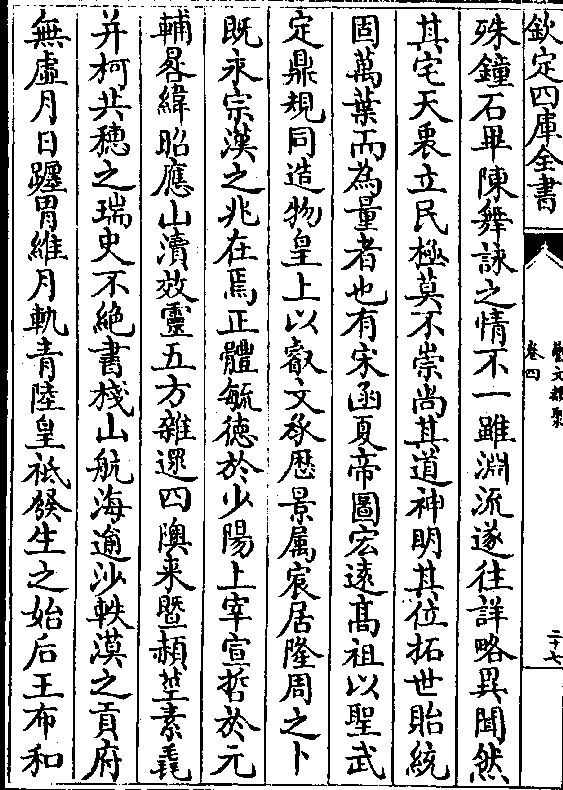 欽定四庫全書
藝文類聚
卷四
二十七
殊鐘石畢陳舞詠之情不一雖淵流遂往詳略異聞然
其宅天衷立民極莫不崇尚其道神明其位拓世貽統
固萬葉而為量者也有宋函夏帝圖宏遠髙祖以聖武
定鼎規同造物皇上以叡文承歴景属宸居隆周之卜
既永宗漢之兆在焉正體毓徳於少陽上宰宣哲於元
輔晷緯昭應山瀆效靈五方雜遝四隩来暨赬莖素毳
并柯共穗之瑞史不絶書棧山航海逾沙軼漠之貢府
無虛月日躔胃維月軌青陸皇祇發生之始后王布和